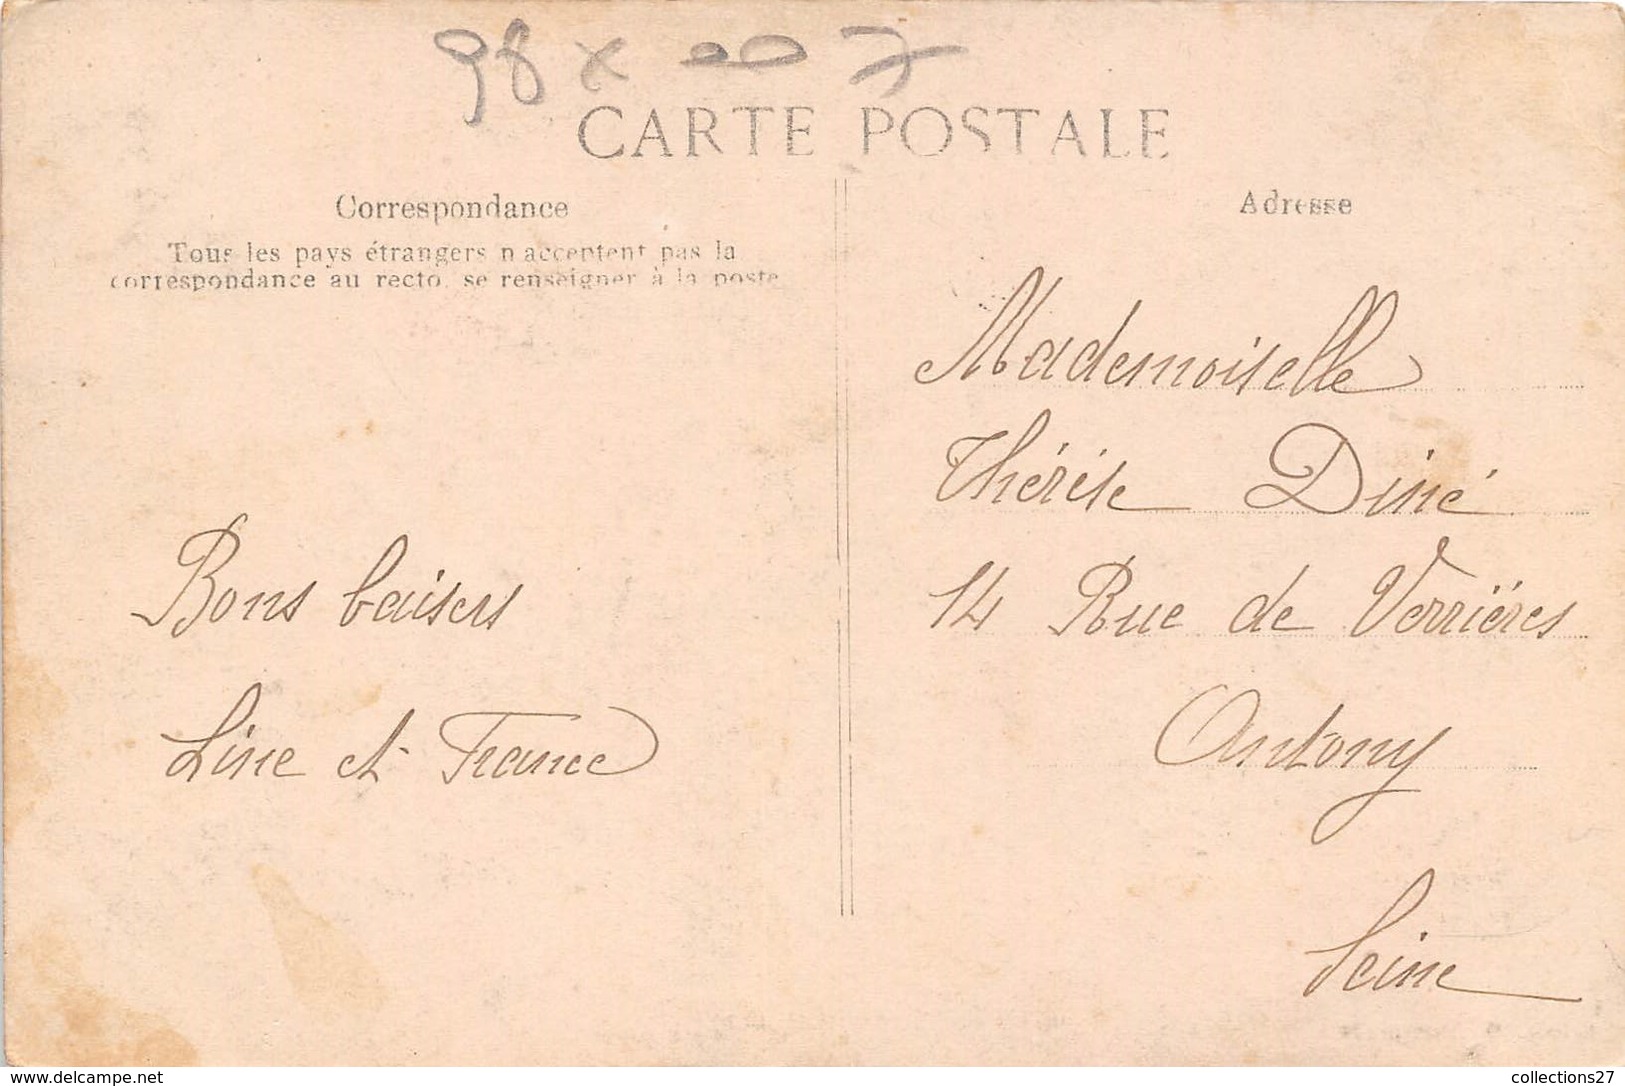 98 x
CARTE POSTALE
Correspondance
Tous les pays étrangers n'acceptent pas la
correspondance au recto, se renseigner à la poste
Bons baisers
Line et France
Adresse
Mademoiselle
Thérèse Diné
14 Rue de Verrières
Antony
Seine
www.delcampe.net
collections27